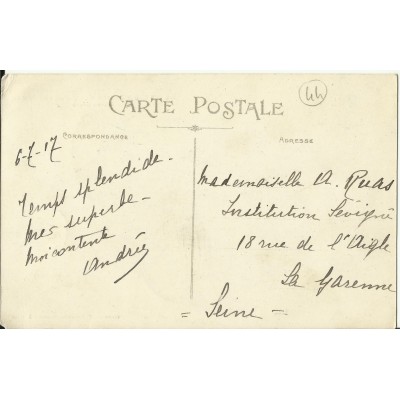 44
CARTE POSTALE
CORRESPONDANCE
ADRESSE
6-7-17
Temps splendide -
Mer superbe -
Moi contente
Andrée
Mademoiselle A. Ruas
Institution Sévigné
18 rue de l'Aigle
La Garenne
= Seine =